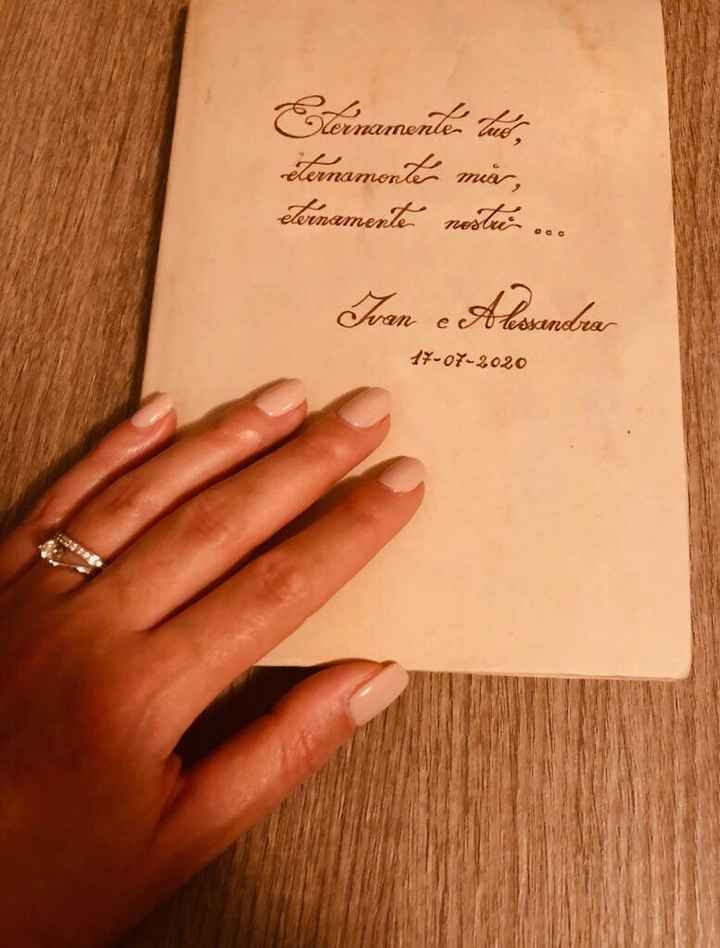 Eternamente tuo,
eternamente mia,
eternamente nostri ...
Ivan e Alessandra
17-07-2020